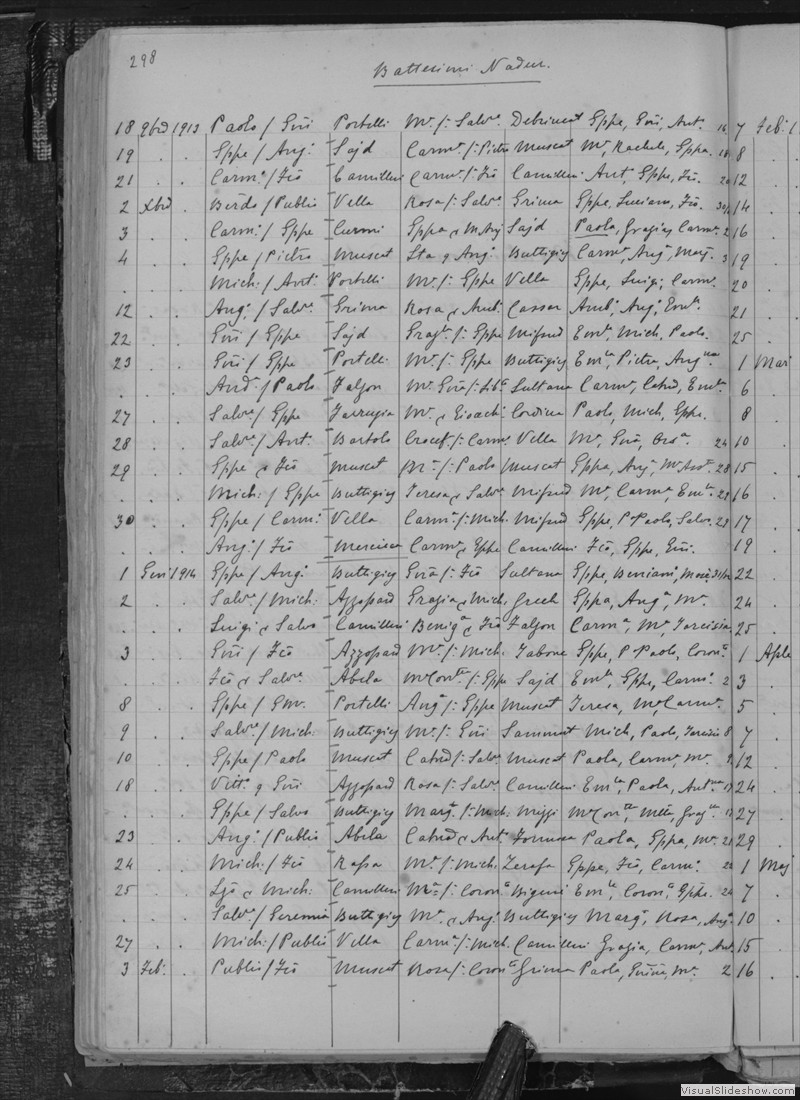 298
Battesimi Nadur.
18 9bre 1913 Paolo / Giũ Portelli Mª /: Salvᵉ Debrincat Gppe, Giũ, Antª 7 Feb:
19 . . Gppe / Angº Sajd Carmª /: Pietro Muscat Mª, Rachele, Gppa 8 .
21 . . Carmº / Frõ Camilleri Carmª /: Frõ Camilleri Antº, Gppe, Frõ. 20 12
2 Xbre . Berdo / Publio Vella Rosa /: Salvᵉ Grima Gppe, Luciano, Frõ. 14 .
3 . . Carmº / Gppe Curmi Gppa & M Angº Sajd Paola, Grazia, Carmª 2 16 .
4 . . Gppe / Pietro Muscat & Angº Buttigieg Carmª, Angª, Margª 3 19 .
. . . Mich: / Antº Portelli Mª /: Gppe Vella Gppe, Luigi, Carmº 20 .
12 . . Angº / Salvᵉ Grima Rosa & Antº Cassar Antº, Angº, Emª. 21 .
22 . . Giũ / Gppe Sajd Grazª /: Gppe Mifsud Emº, Mich, Paolo. 25 .
23 . . Giũ / Gppe Portelli Mª /: Gppe Buttigieg Emˡᵉ, Pietro, Angª 1 Mar
. . . Andª / Paolo Falzon Mª Giũa /: Sultana Carmª, Catnª, Emˡᵃ 6 .
27 . . Salvᵉ / Gppe Farrugia Mª & Gioach: Cordina Paolo, Mich, Gppe. 8 .
28 . . Salvᵉ / Antº Bartolo Crocef /: Carmº Vella Mª, Giũ, 24 10 .
29 . . Gppe & Frõ Muscat Mª /: Paolo Muscat Gppa, Angª, M Antª 28 15 .
. . . Mich: / Gppe Buttigieg Teresa & Salvᵉ Mifsud Mª, Carmª, Emˡᵃ 16 .
30 . . Gppe / Carmº Vella Carmª /: Mich. Mifsud Gppe, P Paolo, Salvᵉ 17 .
. . . Angº / Frõ Mercieca Carmª & Gppe Camilleri Frõ, Gppe, Giũ. 19 .
1 Gen: 1914 Gppe / Angº Buttigieg Giũa /: Frõ Sultana Gppe, Beniamº 22 .
2 . . Salvᵉ / Mich: Azzopard Grazia & Mich. Grech Gppa, Angª, Mª. 24 .
. . . Luigi & Salvᵉ Camilleri Benigª & Frõ Falzon Carmª, Mª, Tarcisia 25 .
3 . . Giũ / Frõ Azzopard Mª /: Mich. Tabone Gppe, P Paolo, Coronº 1 Aple
. . . Frõ & Salvᵉ Abela M Conᵗᵃ /: Gppe Sajd Emˡᵉ, Gppe, Carmº 2 3 .
8 . . Gppe / Em. Portelli Angª /: Gppe Muscat Teresa, Mª, Carmª. 5 .
9 . . Salvᵉ / Mich. Buttigieg Mª /: Giũ Sammut Mich, Paolo, Tarcisio 8 7 .
10 . . Gppe / Paolo Muscat Catnª /: Salvᵉ Muscat Paola, Carmª, Mª. 12 .
18 . . Vittº & Giũ Azzopard Rosa /: Salvᵉ Camilleri Emˡᵃ, Paola, Antⁿᵃ 24 .
. . . Gppe / Salvᵉ Buttigieg Margª /: Mich: Mizzi M Conᵗᵃ, Metᵃ, Grazᵃ 27 .
23 . . Angº / Publio Abela Catnª & Antº Formosa Paola, Gppa, Mª 21 29 .
24 . . Mich: / Frõ Rapa Mª /: Mich. Zerafa Gppe, Frõ, Carmº. 1 Maj
25 . . & Mich: Camilleri Mª /: Coronº Bigeni Emˡᵉ, Coronº, Gppe. 24 7 .
. . . Salvᵉ / Geremia Buttigieg Mª & Angº Buttigieg Margª, Rosa, Angª 10 .
27 . . Mich: / Publio Vella Carmª /: Mich. Camilleri Grazia, Carmª, Antª 15 .
3 Feb: . Publio / Frõ Muscat Rosa /: Coronº Grima Paola, Mª 2 16 .
VisualSlideshow.com